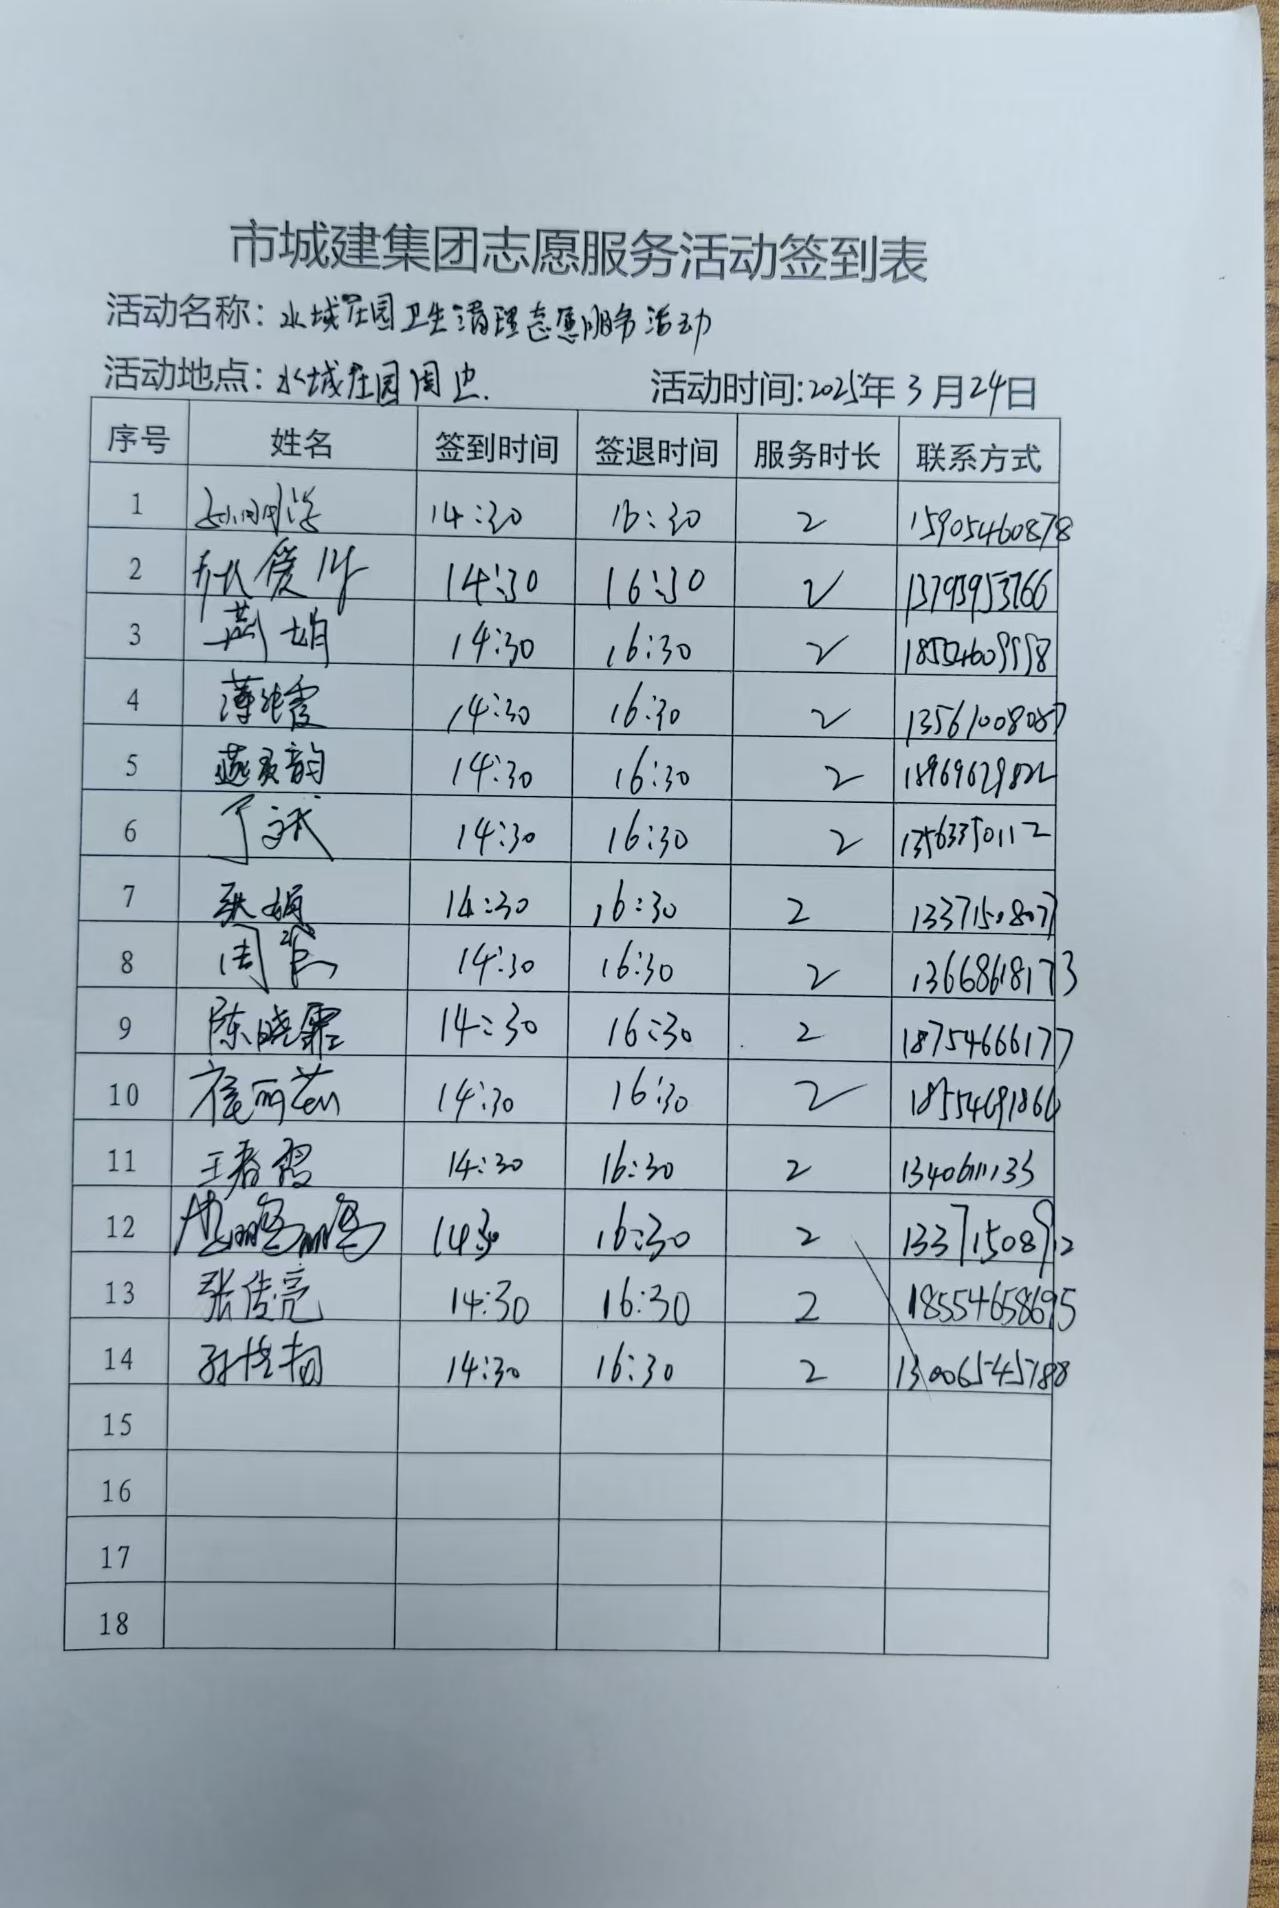 市城建集团志愿服务活动签到表
活动名称：水城庄园卫生清理志愿服务活动
活动地点：水城庄园周边. 活动时间:2025年3月24日
序号 姓名 签到时间 签退时间 服务时长 联系方式
1 14:30 16:30 2 15905460878
2 14:30 16:30 2 13793953766
3 14:30 16:30 2 18554609998
4 薄纯霞 14:30 16:30 2 13561008087
5 14:30 16:30 2 18969629822
6 丁文斌 14:30 16:30 2 13563350112
7 张娟 14:30 16:30 2 13371508077
8 14:30 16:30 2 13668618173
9 陈晓霏 14:30 16:30 2 18754666177
10 崔丽茹 14:30 16:30 2 18554691866
11 王春霞 14:30 16:30 2 1340611133
12 14:30 16:30 2 13371508912
13 张传亮 14:30 16:30 2 18554658695
14 14:30 16:30 2 13006545788
15
16
17
18